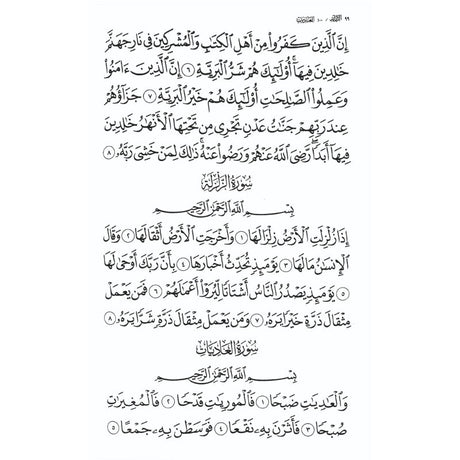 إِنَّ ٱلَّذِينَ كَفَرُوا۟ مِنْ أَهْلِ ٱلْكِتَٰبِ وَٱلْمُشْرِكِينَ فِي نَارِ جَهَنَّمَ
خَٰلِدِينَ فِيهَآ أُو۟لَٰٓئِكَ هُمْ شَرُّ ٱلْبَرِيَّةِ ٦ إِنَّ ٱلَّذِينَ ءَامَنُوا۟
وَعَمِلُوا۟ ٱلصَّٰلِحَٰتِ أُو۟لَٰٓئِكَ هُمْ خَيْرُ ٱلْبَرِيَّةِ ٧ جَزَآؤُهُمْ
عِندَ رَبِّهِمْ جَنَّٰتُ عَدْنٍ تَجْرِى مِن تَحْتِهَا ٱلْأَنْهَٰرُ خَٰلِدِينَ
فِيهَآ أَبَدًا رَّضِىَ ٱللَّهُ عَنْهُمْ وَرَضُوا۟ عَنْهُ ذَٰلِكَ لِمَنْ خَشِىَ رَبَّهُۥ ٨
سُورَةُ الزَّلْزَلَةِ
بِسْمِ ٱللَّهِ ٱلرَّحْمَٰنِ ٱلرَّحِيمِ
إِذَا زُلْزِلَتِ ٱلْأَرْضُ زِلْزَالَهَا ١ وَأَخْرَجَتِ ٱلْأَرْضُ أَثْقَالَهَا ٢ وَقَالَ
ٱلْإِنسَٰنُ مَا لَهَا ٣ يَوْمَئِذٍ تُحَدِّثُ أَخْبَارَهَا ٤ بِأَنَّ رَبَّكَ أَوْحَىٰ لَهَا
٥ يَوْمَئِذٍ يَصْدُرُ ٱلنَّاسُ أَشْتَاتًا لِّيُرَوْا۟ أَعْمَٰلَهُمْ ٦ فَمَن يَعْمَلْ
مِثْقَالَ ذَرَّةٍ خَيْرًا يَرَهُۥ ٧ وَمَن يَعْمَلْ مِثْقَالَ ذَرَّةٍ شَرًّا يَرَهُۥ ٨
سُورَةُ العَادِيَاتِ
بِسْمِ ٱللَّهِ ٱلرَّحْمَٰنِ ٱلرَّحِيمِ
وَٱلْعَٰدِيَٰتِ ضَبْحًا ١ فَٱلْمُورِيَٰتِ قَدْحًا ٢ فَٱلْمُغِيرَٰتِ
صُبْحًا ٣ فَأَثَرْنَ بِهِۦ نَقْعًا ٤ فَوَسَطْنَ بِهِۦ جَمْعًا ٥